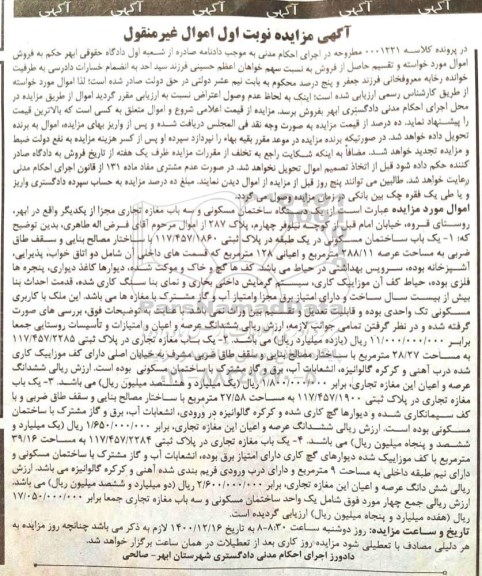 آگهی آگهی آگهی آگهی
آگهی مزایده نوبت اول اموال غیرمنقول
در پرونده کلاسه ۰۰۰۱۲۲۱ مطروحه در اجرای احکام مدنی به موجب دادنامه صادره از شعبه اول دادگاه حقوقی ابهر حکم به فروش
اموال مورد خواسته و تقسیم حاصل از فروش به نسبت سهم خواهان اعظم حسینی فرزند سید احد به انضمام خسارات دادرسی به طرفیت
خوانده رخابه معروفخانی فرزند جعفر و پنج درصد محکوم به بابت نیم عشر دولتی در حق دولت صادر شده است؛ لذا اموال مورد خواسته
از طریق کارشناس رسمی ارزیابی شده است؛ اینک به لحاظ عدم وصول اعتراض نسبت به ارزیابی مقرر گردید اموال از طریق مزایده در
محل اجرای احکام مدنی دادگستری ابهر بفروش برسد. مزایده از قیمت اعلامی شروع و اموال متعلق به کسی است که بالاترین قیمت
را پیشنهاد نماید. ده درصد از قیمت مزایده به صورت وجه نقد فی المجلس دریافت شده و پس از واریز بهای مزایده، اموال به برنده
تحویل داده خواهد شد. در صورتیکه برنده مزایده در موعد مقرر بقیه بهاء را نپردازد سپرده او پس از کسر هزینه مزایده به نفع دولت ضبط
و مزایده تجدید خواهد شد. مضافاً به اینکه شکایت راجع به تخلف از مقررات مزایده ظرف یک هفته از تاریخ فروش به دادگاه صادر
کننده حکم داده شود قبل از اتخاذ تصمیم اموال تحویل نخواهد شد. در صورت عدم مشتری مفاد ماده ۱۳۱ از قانون اجرای احکام مدنی
رعایت خواهد شد. طالبین می توانند پنج روز قبل از مزایده از اموال دیدن نمایند. مبلغ ده درصد مزایده به حساب سپرده دادگستری واریز
و یا طی یک فقره چک بین بانکی به برنده مزایده وصول می گردد.
اموال مورد مزایده عبارت است از: یک دستگاه ساختمان مسکونی و سه باب مغازه تجاری مجزا از یکدیگر واقع در ابهر،
روستای قروه، خیابان امام قبل از کوچه نیلوفر چهارم، پلاک ۲۸۷ از اموال مرحوم آقای فرض اله طاهری، بدین توضیح
که: ۱- یک باب ساختمان مسکونی در یک طبقه در پلاک ثبتی ۱۱۷/۴۵۷/۱۸۶۰ با ساختار مصالح بنایی و سقف طاق
ضربی به مساحت عرصه ۲۸۸/۱۱ مترمربع و اعیانی ۱۲۸ مترمربع که قسمت های داخلی آن شامل دو اتاق خواب، پذیرایی،
آشپزخانه بوده، سرویس بهداشتی در حیاط می باشد. کف ها گچ و خاک و موکت شده، دیوارها کاغذ دیواری، پنجره ها
فلزی بوده، حیاط کف آن موزاییک کاری، سیستم گرمایش داخلی بخاری و نمای بنا سنگ کاری شده، قدمت احداث بنا
بیش از بیست سال ساخت و دارای امتیاز برق مجزا وامتیاز آب و گاز مشترک با مغازه ها می باشد. این ملک با کاربری
مسکونی تک واحدی بوده و قابلیت تعدیل و تقسیم بین ورثه نمی باشد. با عنایت به توضیحات فوق، بررسی های صورت
گرفته شده و در نظر گرفتن تمامی جوانب لازمه، ارزش ریالی ششدانگ عرصه و اعیان و امتیازات و تأسیسات روستایی جمعا
برابر ۱۱/۰۰۰/۰۰۰/۰۰۰ ریال (یازده میلیارد ریال) می باشد. ۲- یک باب مغازه تجاری در پلاک ثبتی ۱۱۷/۴۵۷/۲۲۸۵
به مساحت ۲۸/۲۷ مترمربع با ساختار مصالح بنایی و سقف طاق ضربی مشرف به خیابان اصلی دارای کف موزاییک کاری
شده درب آهنی و کرکره گالوانیزه، انشعابات آب، برق و گاز مشترک با ساختمان مسکونی بوده است. ارزش ریالی ششدانگ
عرصه و اعیان این مغازه تجاری، برابر ۱/۸۰۰/۰۰۰/۰۰۰ ریال (یک میلیارد و هشتصد میلیون ریال) می باشد. ۳- یک باب
مغازه تجاری در پلاک ثبتی ۱۱۷/۴۵۷/۱۹۰۰ به مساحت ۲۷/۵۸ مترمربع با ساختار مصالح بنایی و سقف طاق ضربی و با
کف سیمانکاری شده و دیوارها گچ کاری شده و کرکره گالوانیزه در ورودی، انشعابات آب، برق و گاز مشترک با ساختمان
مسکونی بوده است. ارزش ریالی ششدانگ عرصه و اعیان این مغازه تجاری، برابر ۱/۶۵۰/۰۰۰/۰۰۰ ریال (یک میلیارد و
ششصد و پنجاه میلیون ریال) می باشد. ۴- یک باب مغازه تجاری در پلاک ثبتی ۱۱۷/۴۵۷/۲۲۸۴ به مساحت ۳۹/۱۶
مترمربع با کف موزاییک شده دیوارهای گچ کاری دارای امتیاز برق بوده، انشعابات آب و گاز مشترک با ساختمان مسکونی و
دارای نیم طبقه داخلی به مساحت ۹ مترمربع و دارای درب ورودی فریم بندی شده آهنی و کرکره گالوانیزه می باشد. ارزش
ریالی شش دانگ عرصه و اعیان این مغازه تجاری، برابر ۲/۶۰۰/۰۰۰/۰۰۰ ریال (دو میلیارد و ششصد میلیون ریال) می باشد.
ارزش ریالی جمع چهار مورد فوق شامل یک واحد ساختمان مسکونی و سه باب مغازه تجاری جمعا برابر ۱۷/۰۵۰/۰۰۰/۰۰۰
ریال (هفده میلیارد و پنجاه میلیون ریال) ارزیابی گردیده است.
تاریخ و ساعت مزایده: روز دوشنبه ساعت ۸:۳۰-۸ به تاریخ ۱۴۰۰/۱۲/۱۶ لازم به ذکر می باشد چنانچه روز مزایده به
هر دلیلی مصادف با تعطیلی شود مزایده روز کاری بعد از تعطیلات در همان ساعت برگزار خواهد شد.
دادورز اجرای احکام مدنی دادگستری شهرستان ابهر- صالحی